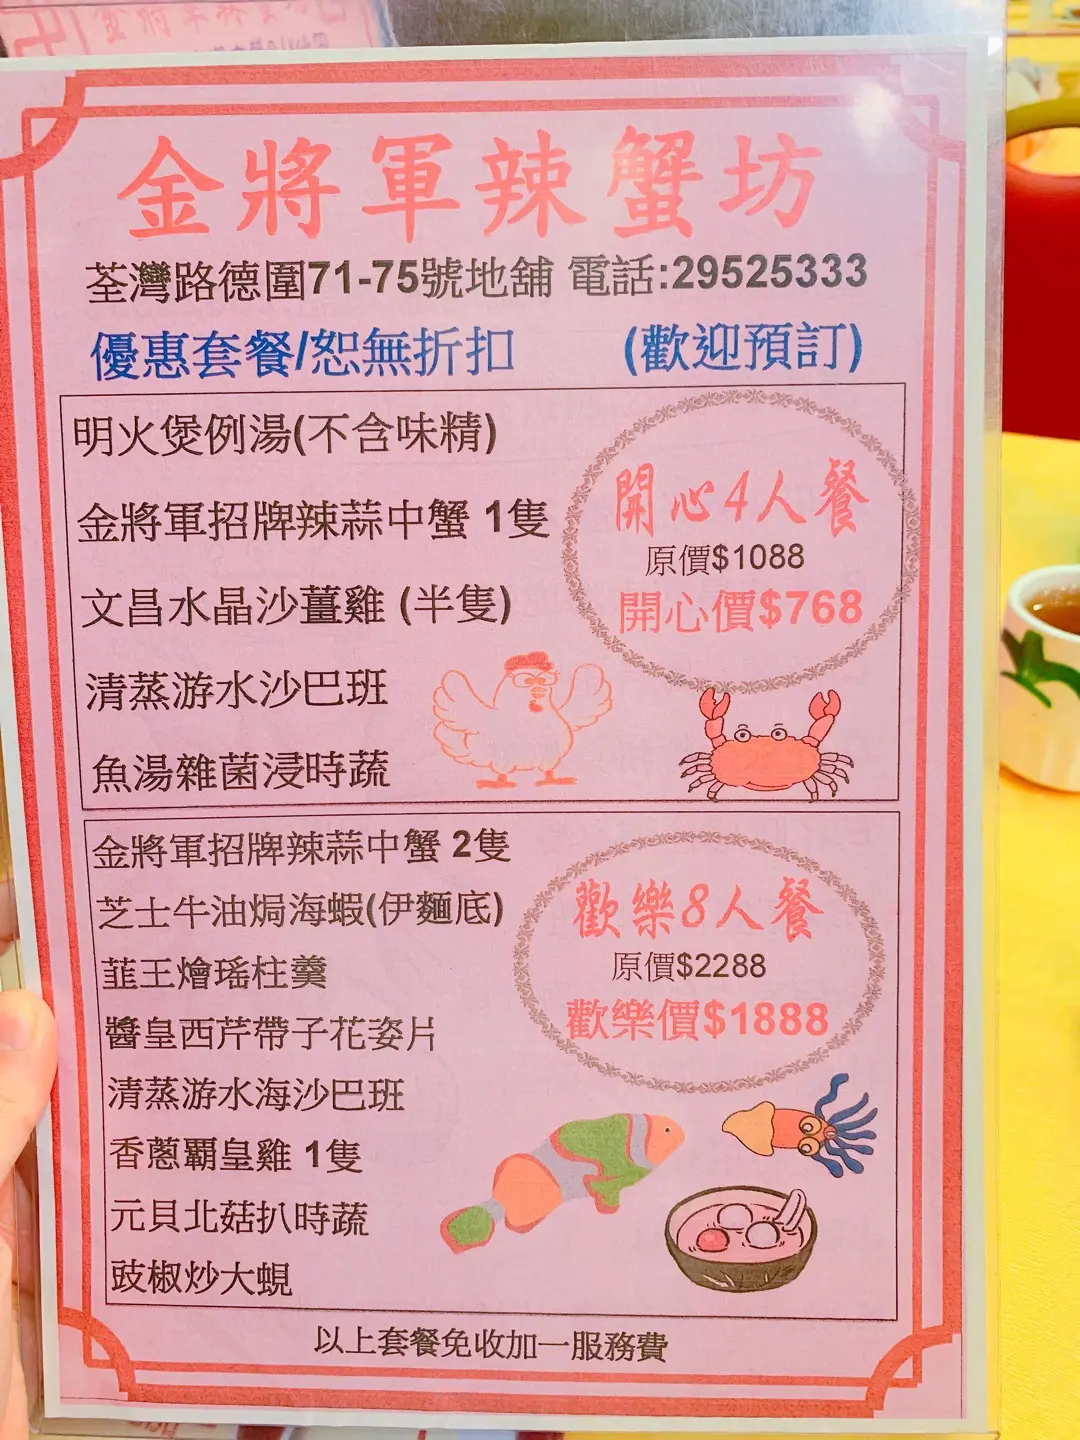 金將軍辣蟹坊
荃灣路德圍71-75號地舖 電話:29525333
優惠套餐/恕無折扣 (歡迎預訂)
明火煲例湯(不含味精)
金將軍招牌辣蒜中蟹 1隻
文昌水晶沙薑雞 (半隻)
清蒸游水沙巴班
魚湯雜菌浸時蔬
開心4人餐
原價$1088
開心價$768
金將軍招牌辣蒜中蟹 2隻
芝士牛油焗海蝦(伊麵底)
韮王燴瑤柱羹
醬皇西芹帶子花姿片
清蒸游水海沙巴班
香蔥霸皇雞 1隻
元貝北菇扒時蔬
豉椒炒大蜆
歡樂8人餐
原價$2288
歡樂價$1888
以上套餐免收加一服務費